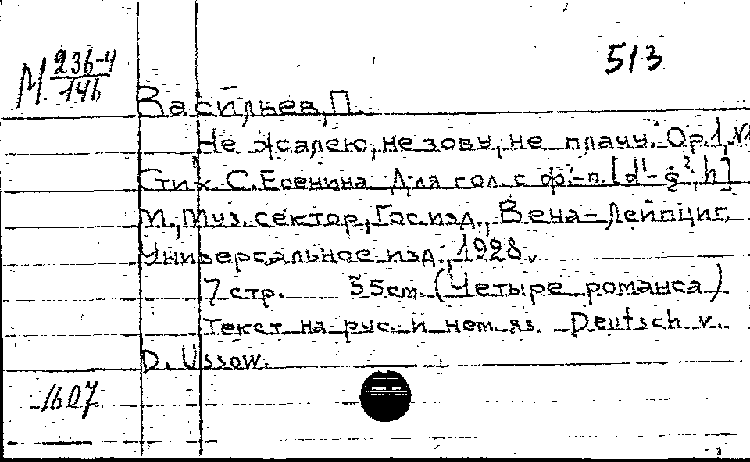 513
М 236-4
146
Васильев, П.
Не жалею, не зову, не плачу. Op.1, №
Стих С. Есенина Для гол. с ф.-п. [d'-g², h]
М., Муз. сектор, Госизд., Вена-Лейпциг,
Универсальное изд., 1928.
7 стр. 35cm. (Четыре романса)
Текст на рус. и нем. яз. Deutsch v.
D. Ussow.
1607